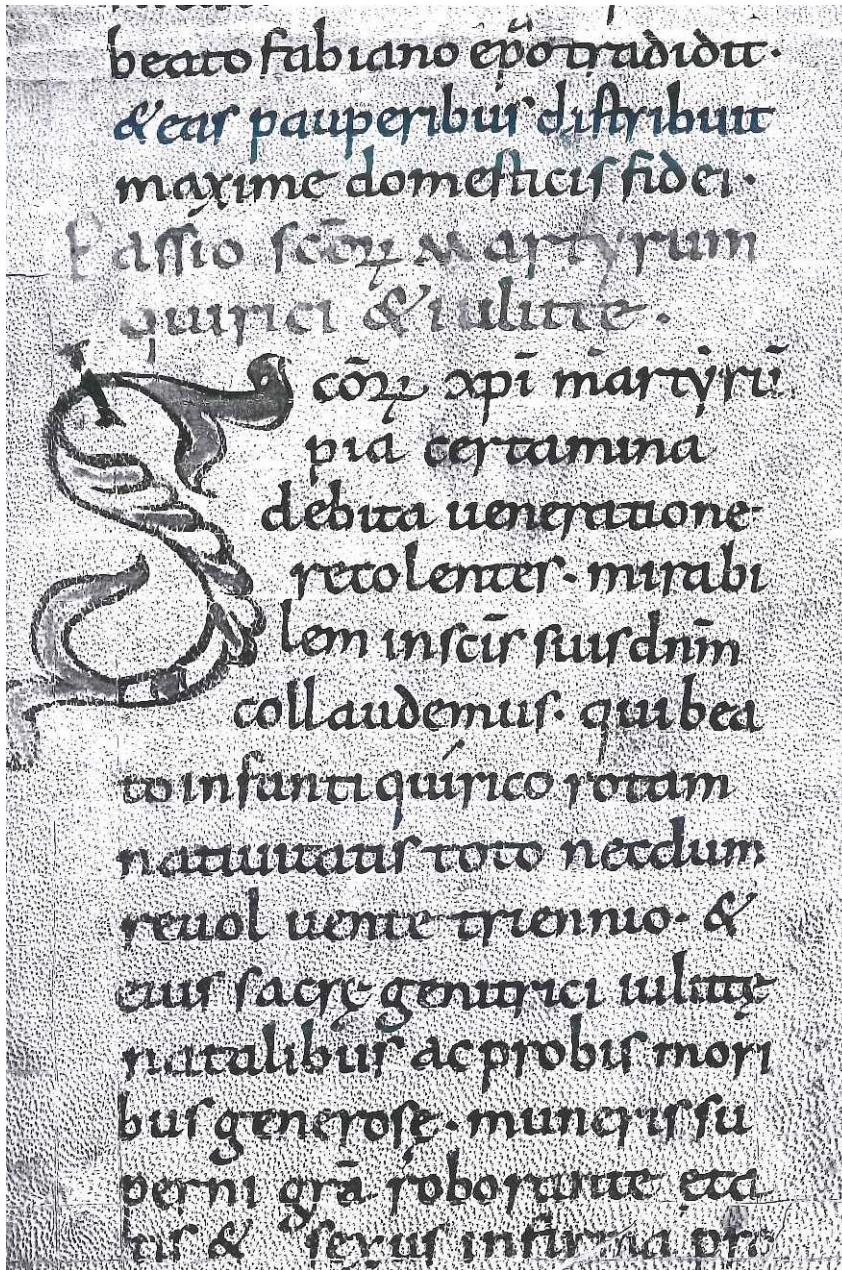 beato fabiano ep̄o tradidit·
& eas pauperibus distribuit
maxime domesticis fidei·
Passio sc̄oꝝ Martyrum
quirici & iulitte·
Sc̄oꝝ xp̄i martyrū
pia certamina
debita ueneratione
recolentes· mirabi
lem in sc̄is suis dn̄m
collaudemus· qui bea
to infanti quirico rotam
natiuitatis toto necdum
reuoluente triennio· &
eius sacrę genitrici iulittę
natalibus ac probis mori
bus generosę· muneris su
perni gr̄a roborante eta
tis & sexus infirma pro